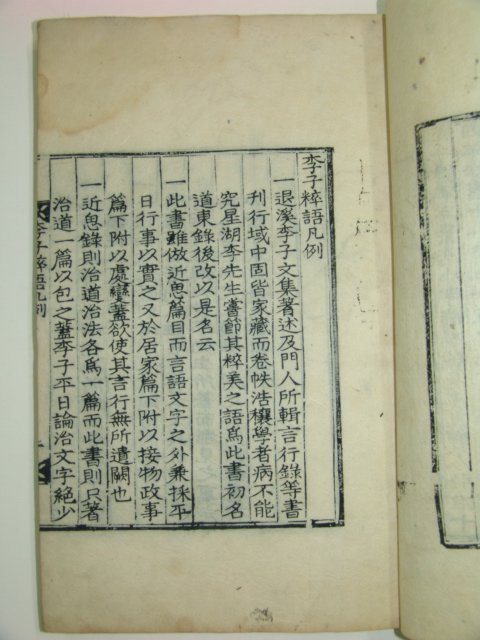 李子粹語凡例
一退溪李子文集著述及門人所輯言行錄等書
刊行域中固皆家藏而卷帙浩穰學者病不能
究星湖李先生嘗節其粹美之語爲此書初名
道東錄後改以是名云
一此書雖倣近思篇目而言語文字之外兼採平
日行事以實之又於居家篇下附以接物政事
篇下附以處變蓋欲使其言行無所遺闕也
一近思錄則治道治法各爲一篇而此書則只著
治道一篇以包之蓋李子平日論治文字絶少
李子粹語凡例
一